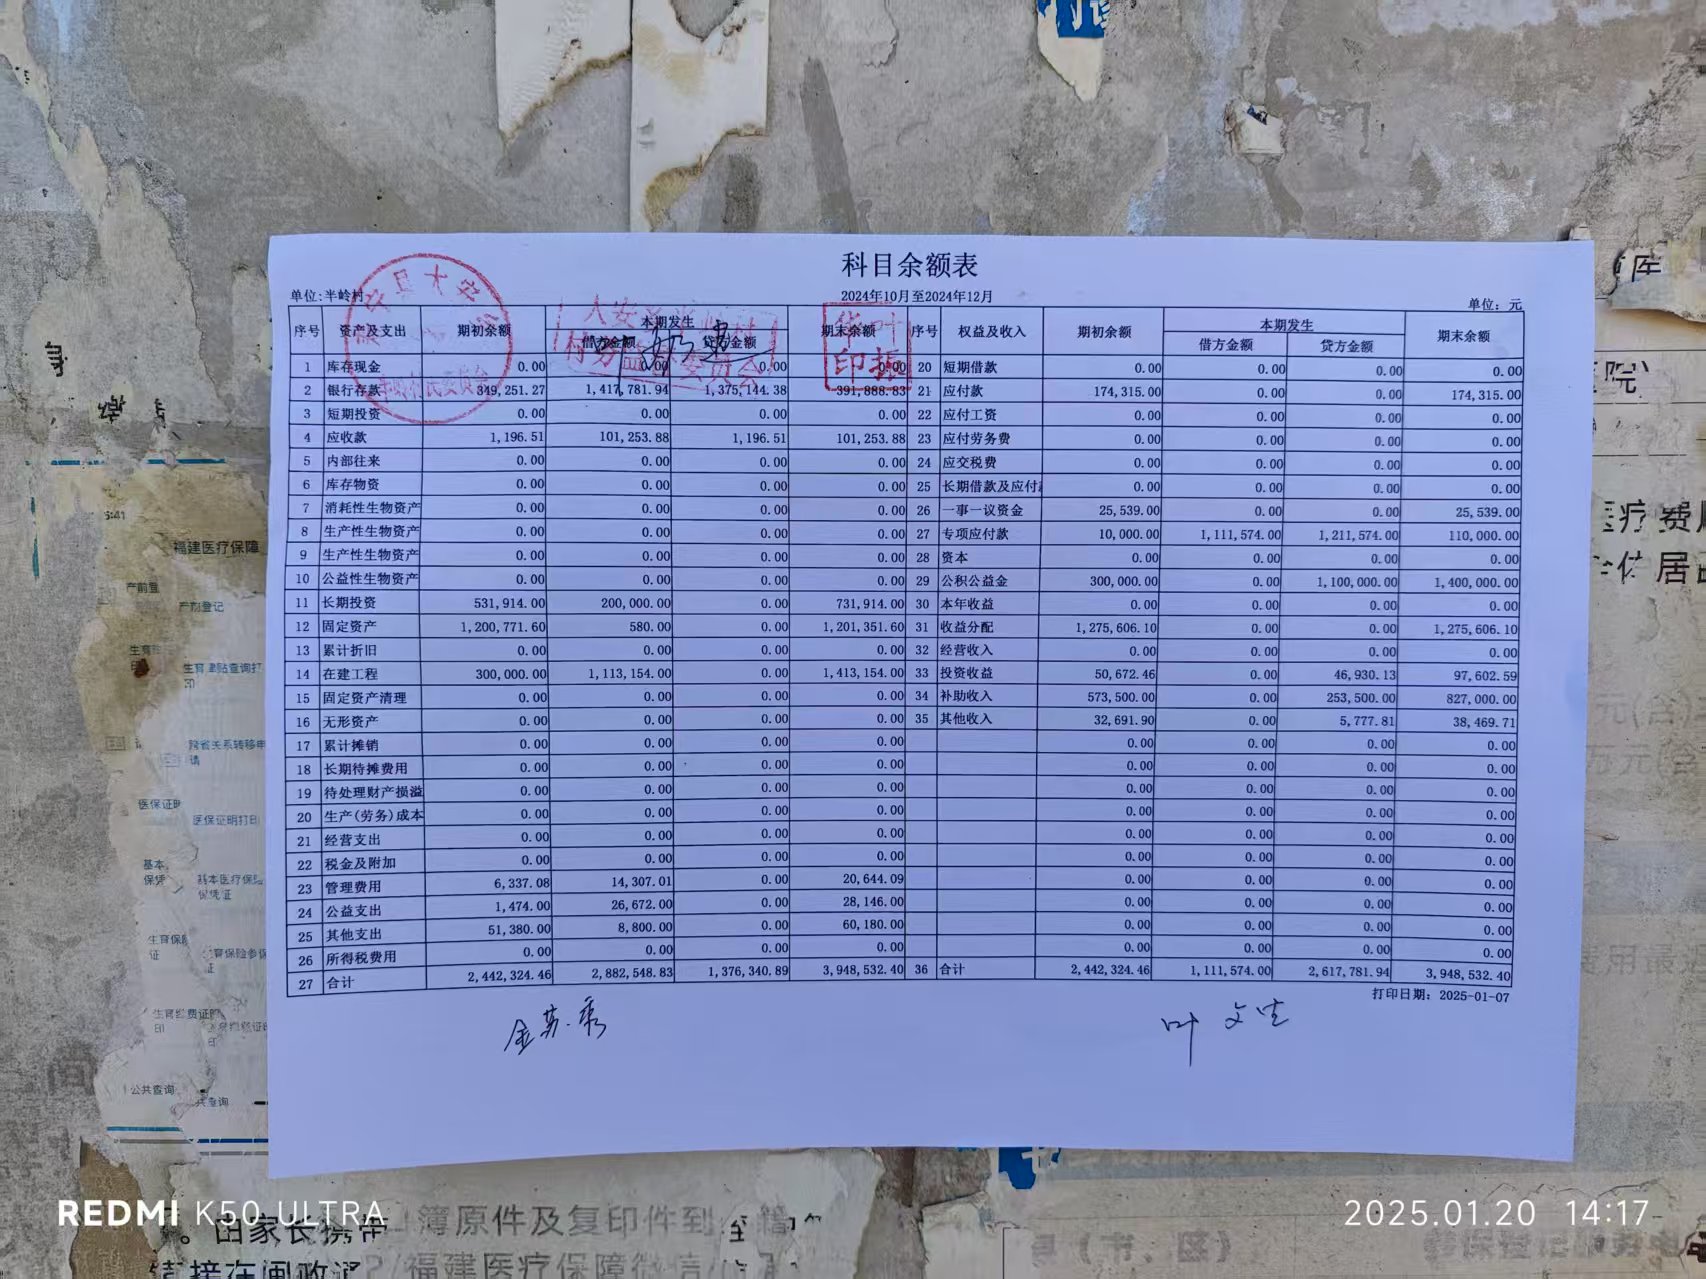 科目余额表
单位:半岭村
2024年10月至2024年12月
单位:元
序号 资产及支出 期初余额 本期发生 期末余额 序号 权益及收入 期初余额 本期发生 期末余额
借方金额 贷方金额 借方金额 贷方金额
1 库存现金 0.00 0.00 0.00 0.00 20 短期借款 0.00 0.00 0.00 0.00
2 银行存款 349,251.27 1,417,781.94 1,375,144.38 391,888.83 21 应付款 174,315.00 0.00 0.00 174,315.00
3 短期投资 0.00 0.00 0.00 0.00 22 应付工资 0.00 0.00 0.00 0.00
4 应收款 1,196.51 101,253.88 1,196.51 101,253.88 23 应付劳务费 0.00 0.00 0.00 0.00
5 内部往来 0.00 0.00 0.00 0.00 24 应交税费 0.00 0.00 0.00 0.00
6 库存物资 0.00 0.00 0.00 0.00 25 长期借款及应付 0.00 0.00 0.00 0.00
7 消耗性生物资产 0.00 0.00 0.00 0.00 26 一事一议资金 25,539.00 0.00 0.00 25,539.00
8 生产性生物资产 0.00 0.00 0.00 0.00 27 专项应付款 10,000.00 1,111,574.00 1,211,574.00 110,000.00
9 生产性生物资产 0.00 0.00 0.00 0.00 28 资本 0.00 0.00 0.00 0.00
10 公益性生物资产 0.00 0.00 0.00 0.00 29 公积公益金 300,000.00 0.00 1,100,000.00 1,400,000.00
11 长期投资 531,914.00 200,000.00 0.00 731,914.00 30 本年收益 0.00 0.00 0.00 0.00
12 固定资产 1,200,771.60 580.00 0.00 1,201,351.60 31 收益分配 1,275,606.10 0.00 0.00 1,275,606.10
13 累计折旧 0.00 0.00 0.00 0.00 32 经营收入 0.00 0.00 0.00 0.00
14 在建工程 300,000.00 1,113,154.00 0.00 1,413,154.00 33 投资收益 50,672.46 0.00 46,930.13 97,602.59
15 固定资产清理 0.00 0.00 0.00 0.00 34 补助收入 573,500.00 0.00 253,500.00 827,000.00
16 无形资产 0.00 0.00 0.00 0.00 35 其他收入 32,691.90 0.00 5,777.81 38,469.71
17 累计摊销 0.00 0.00 0.00 0.00 0.00 0.00 0.00 0.00
18 长期待摊费用 0.00 0.00 0.00 0.00 0.00 0.00 0.00 0.00
19 待处理财产损溢 0.00 0.00 0.00 0.00 0.00 0.00 0.00 0.00
20 生产(劳务)成本 0.00 0.00 0.00 0.00 0.00 0.00 0.00 0.00
21 经营支出 0.00 0.00 0.00 0.00 0.00 0.00 0.00 0.00
22 税金及附加 0.00 0.00 0.00 0.00 0.00 0.00 0.00 0.00
23 管理费用 6,337.08 14,307.01 0.00 20,644.09 0.00 0.00 0.00 0.00
24 公益支出 1,474.00 26,672.00 0.00 28,146.00 0.00 0.00 0.00 0.00
25 其他支出 51,380.00 8,800.00 0.00 60,180.00 0.00 0.00 0.00 0.00
26 所得税费用 0.00 0.00 0.00 0.00 0.00 0.00 0.00 0.00
27 合计 2,442,324.46 2,882,548.83 1,376,340.89 3,948,532.40 36 合计 2,442,324.46 1,111,574.00 2,617,781.94 3,948,532.40
打印日期: 2025-01-07
华叶
印振
福建医疗保障
产前登记
生育津贴查询打
印
跨省关系转移申
请
医保证明打印
基本医疗保险
公共查询
。由家长携带
簿原件及复印件到
福建医疗保障微信
REDMI K50 ULTRA
2025.01.20 14:17